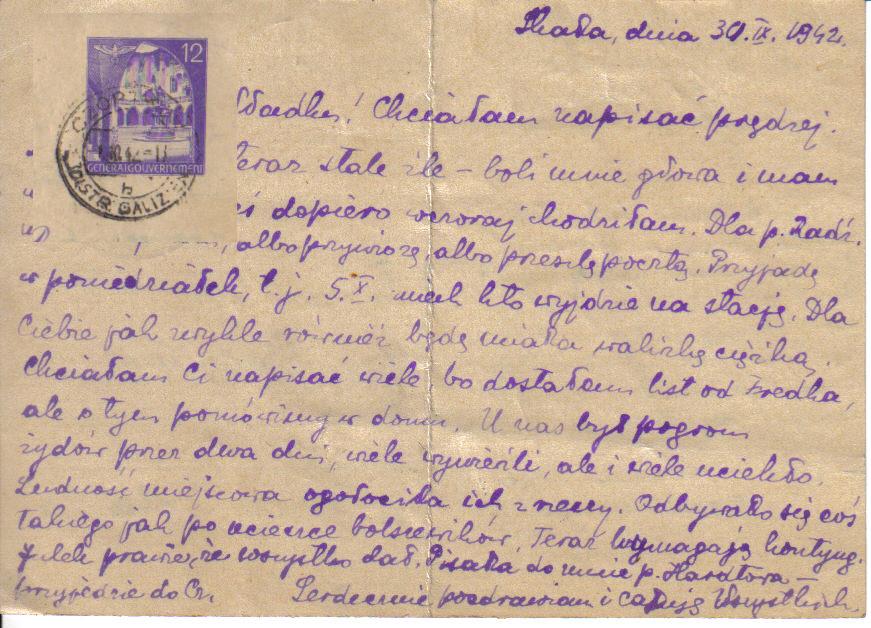 Skała, dnia 30.IX.1942.
12
GENERALGOUVERNEMENT
GALIZ
Władku! Chciałam napisać prędzej.
teraz stale źle – boli mnie głowa i mam
dopiero wczoraj chodziłam. Dla p. Radz.
, albo przywiozę, albo prześlę pocztą. Przyjadę
w poniedziałek, t.j. 5.X. niech kto wyjdzie na stację. Dla
Ciebie jak zwykle również będę miała walizkę ciężką.
Chciałam Ci napisać wiele bo dostałam list od Fredka,
ale o tym pomówimy w domu. U nas był pogrom
żydów przez dwa dni, wiele wywieźli, ale i wiele uciekło.
Ludność miejscowa ogołociła ich z rzeczy. Odbywało się coś
takiego jak po ucieczce bolszewików. Teraz wymagają kontyng.
prawie, że wszystko dał. Pisała do mnie p. Hardtowa –
przyjedzie do Cz. Serdecznie pozdrawiam i całuję Wszystkich.